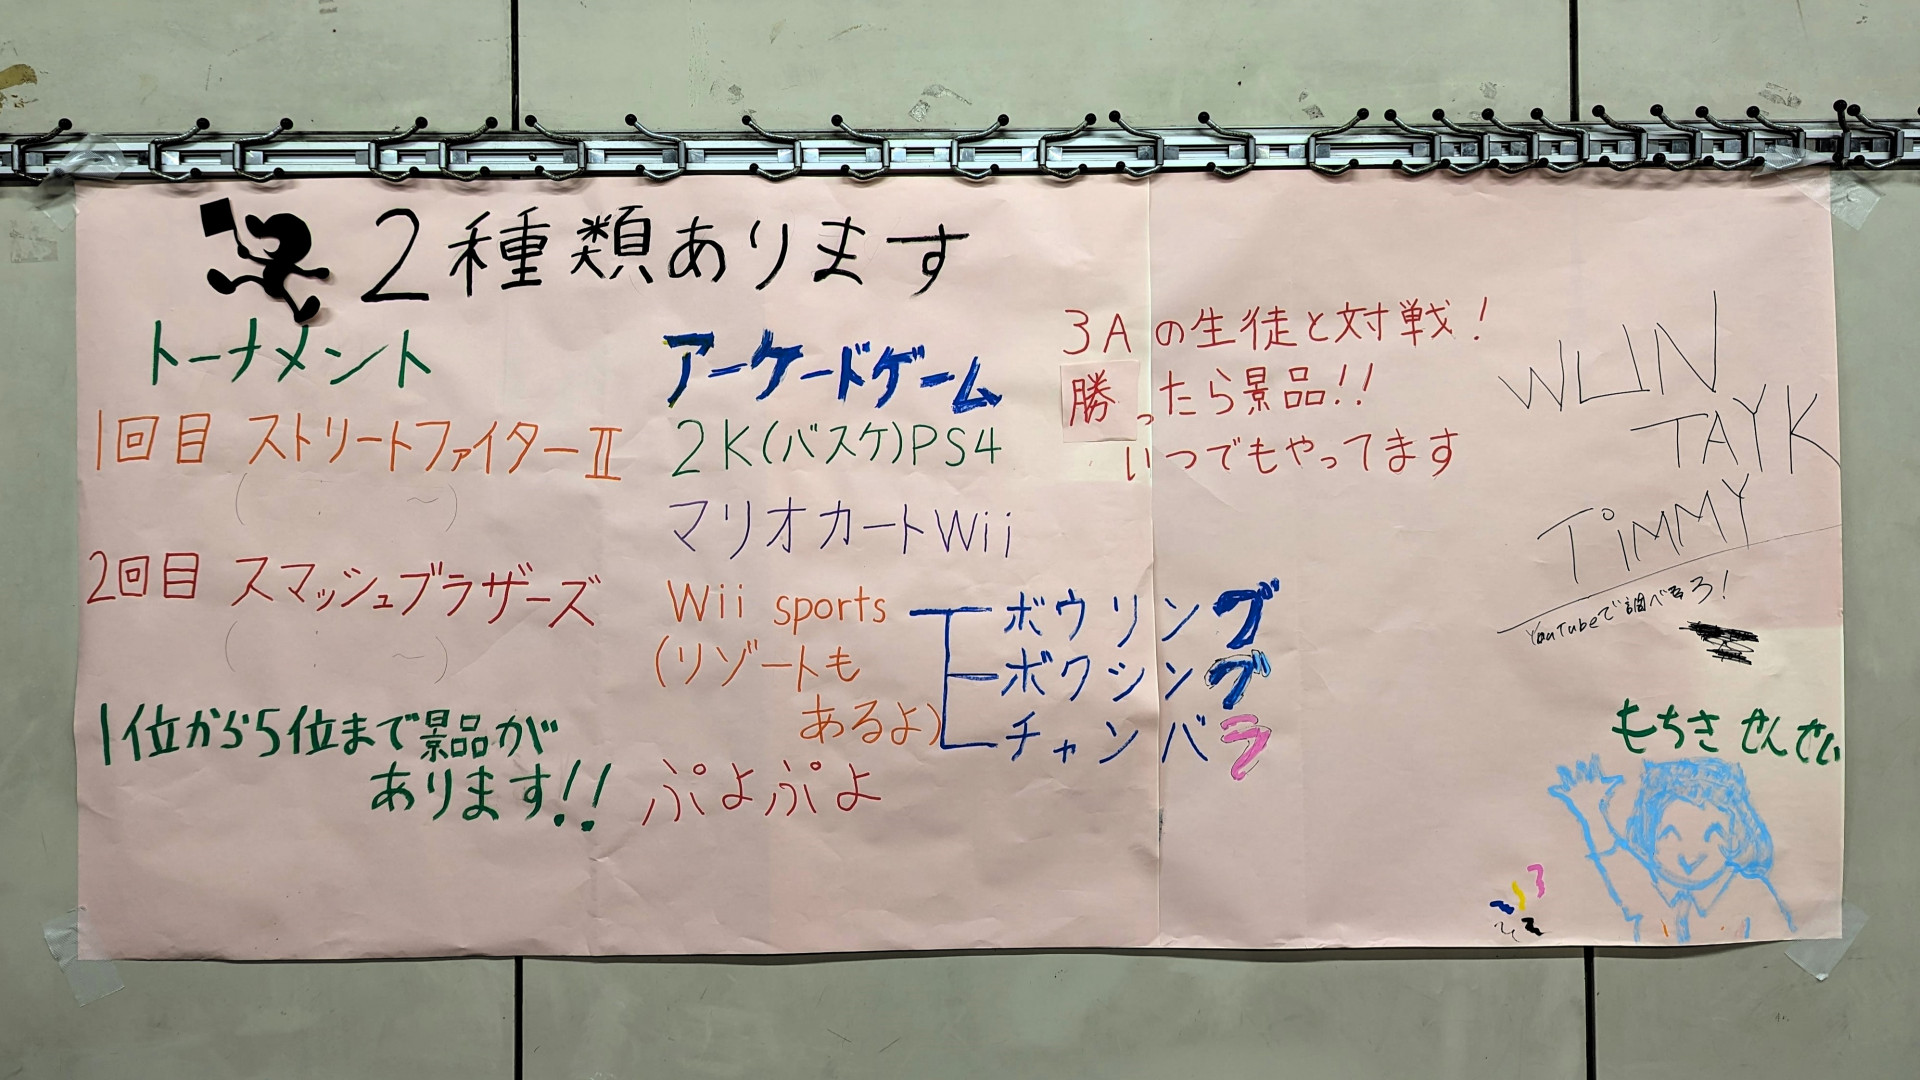 2種類あります
トーナメント
1回目 ストリートファイターⅡ
( ～)
2回目 スマッシュブラザーズ
( ～)
1位から5位まで景品が
あります!!
アーケードゲーム
2K(バスケ)PS4
マリオカートWii
Wii sports
(リゾートも
あるよ)
ボウリング
ボクシング
チャンバラ
ぷよぷよ
3Aの生徒と対戦!
勝ったら景品!!
いつでもやってます
WUN
TAYK
TiMMY
YouTubeで調べろ!
もちさせんせい